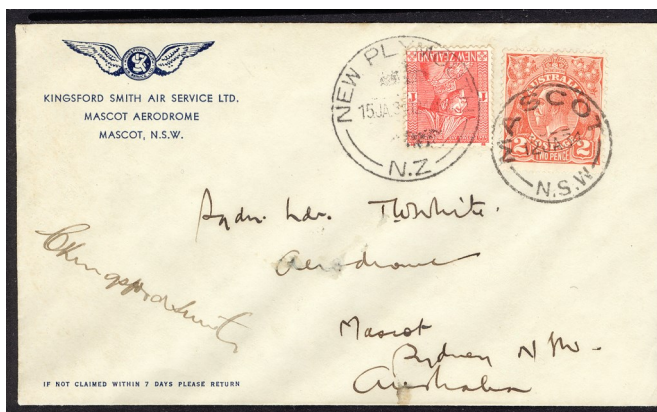 KINGSFORD SMITH AIR SERVICE LTD.
MASCOT AERODROME
MASCOT, N.S.W.
NEW PLYM
15JA3
N.Z
NEW ZEALAND
AUSTRALIA
2 2
TWO PENCE
MASCOT
12JA34
N.S.W.
Sqdn. Ldr. T.W.White.
Aerodrome
Mascot
Sydney N.S.W.
Australia
CKingsfordSmith
IF NOT CLAIMED WITHIN 7 DAYS PLEASE RETURN